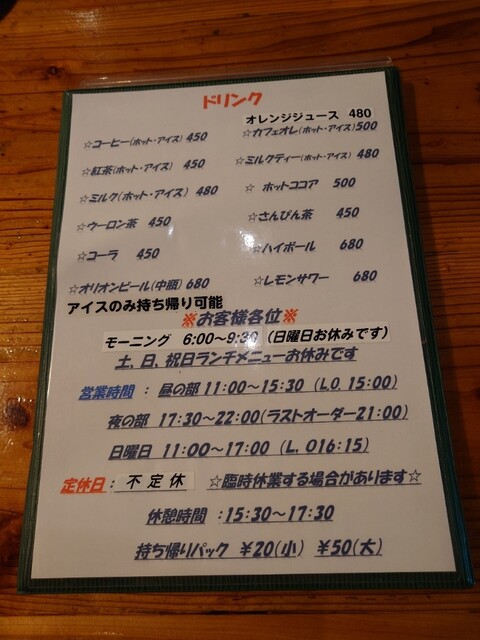 ドリンク
オレンジジュース 480
☆コーヒー(ホット・アイス) 450
☆カフェオレ(ホット・アイス)500
☆紅茶(ホット・アイス) 450
☆ミルクティー(ホット・アイス) 480
☆ミルク(ホット・アイス) 480
☆ ホットココア 500
☆ウーロン茶 450
☆さんぴん茶 450
☆コーラ 450
☆ハイボール 680
☆オリオンビール(中瓶)680
☆レモンサワー 680
アイスのみ持ち帰り可能
※お客様各位※
モーニング 6:00～9:30 (日曜日お休みです)
土、日、祝日ランチメニューお休みです
営業時間 : 昼の部 11:00～15:30 (L.O. 15:00)
夜の部 17:30～22:00(ラストオーダー21:00)
日曜日 11:00～17:00 (L. O16:15)
定休日: 不定休 ☆臨時休業する場合があります☆
休憩時間 :15:30～17:30
持ち帰りパック ￥20(小) ￥50(大)